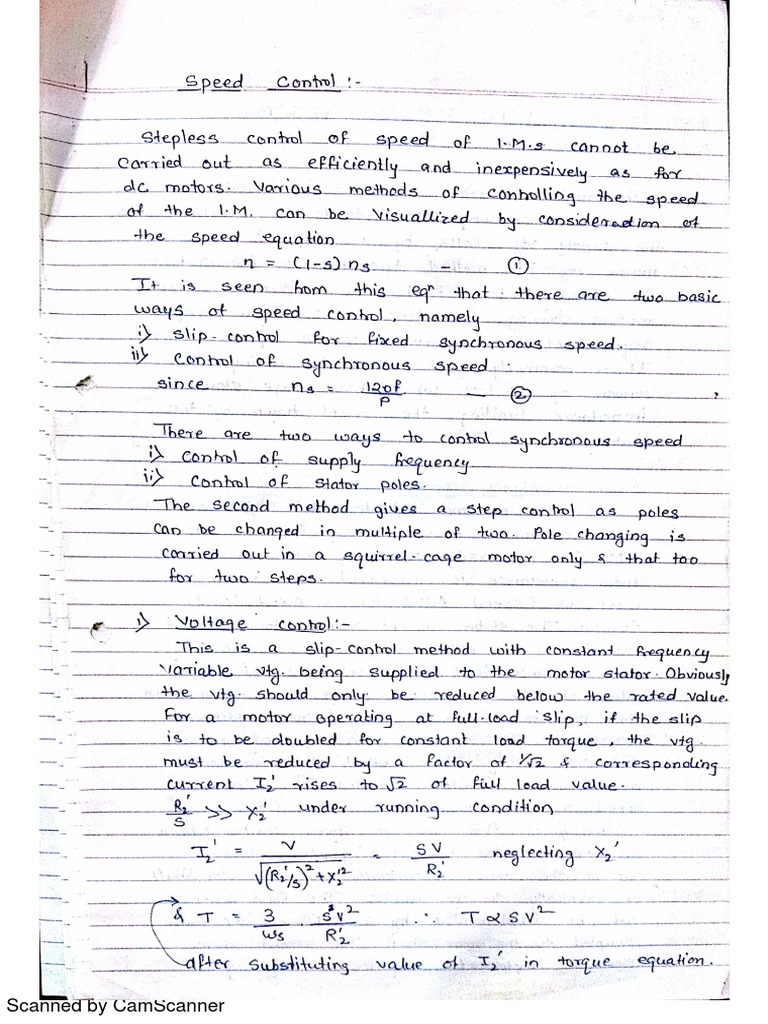 Speed Control :-
Stepless control of speed of I.M.s cannot be
Carried out as efficiently and inexpensively as for
dc motors. Various methods of controlling the speed
of the I.M. can be visuallized by consideration of
the speed equation
n = (1-s) ns - ①
It is seen from this eqn that there are two basic
ways of speed control, namely
i) slip-control for fixed synchronous speed.
ii) Control of synchronous speed.
since ns = 120f/P - ②
There are two ways to control synchronous speed
i) Control of supply frequency
ii) Control of stator poles.
The second method gives a step control as poles
can be changed in multiple of two. Pole changing is
carried out in a squirrel-cage motor only & that too
for two steps.
1) Voltage control :-
This is a slip-control method with constant frequency
variable vtg. being supplied to the motor stator. Obviously
the vtg. should only be reduced below the rated value.
For a motor operating at full-load slip, if the slip
is to be doubled for constant load torque, the vtg.
must be reduced by a factor of 1/√2 & corresponding
current I2' rises to √2 of full load value.
R2'/S >> X2' under running condition
I2' = V/√((R2'/s)² + X2'²) = SV/R2' neglecting X2'
& T = 3/ωs · s²V²/R2' ∴ T ∝ SV²
after substituting value of I2' in torque equation.
Scanned by CamScanner